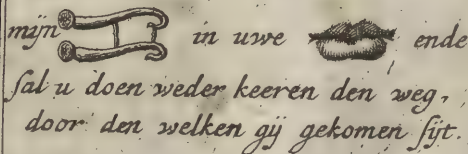 mijn in uwe ende
sal u doen weder keeren den weg,
door den welken gij gekomen sijt.